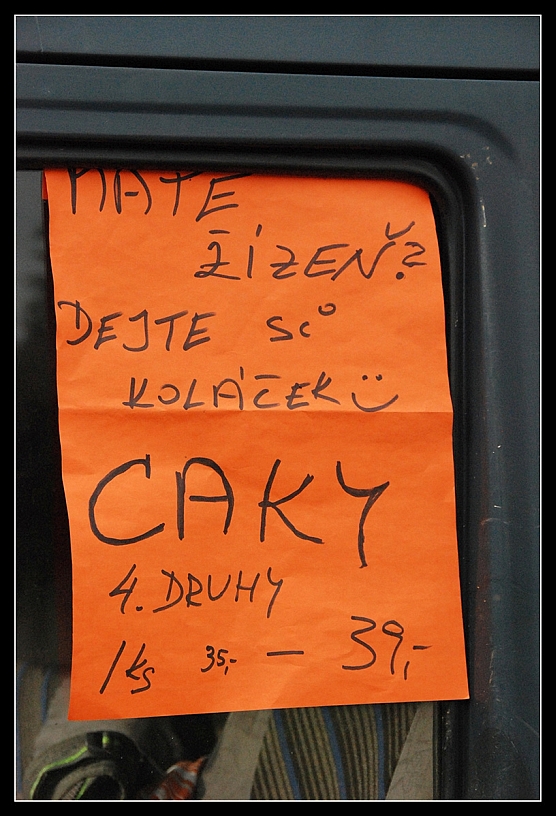 MÁTE
ŽÍZEŇ?
DEJTE SI
KOLÁČEK
CAKY
4. DRUHY
/ks 35,- — 39,-